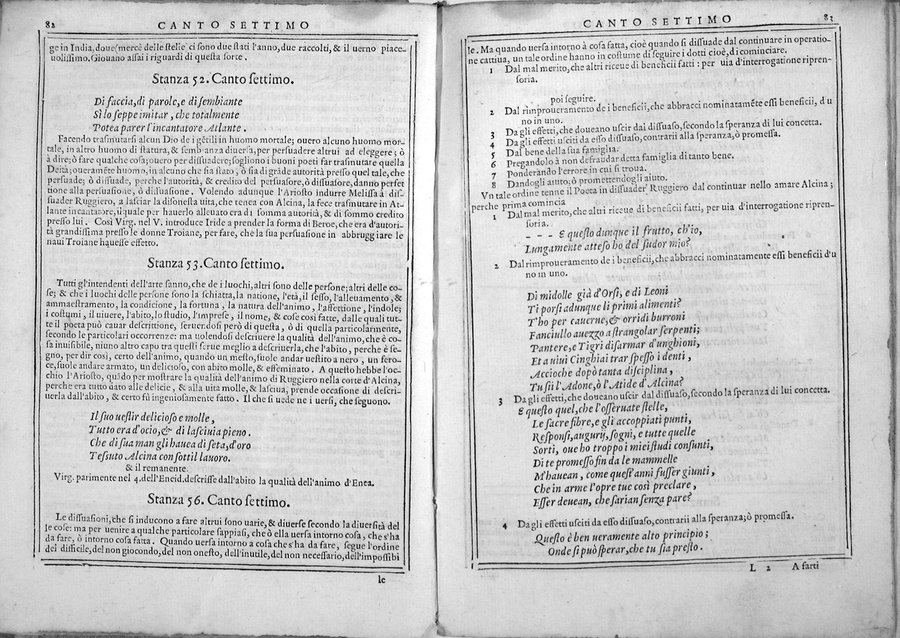 82 CANTO SETTIMO
ge in India, doue (mercè delle stelle) ci sono due stati l'anno, due raccolti, & il uerno piace-
uolissimo. Giouano assai i riguardi di questa sorte.
Stanza 52. Canto settimo.
Di faccia, di parole, e di sembiante
Sì lo seppe imitar, che totalmente
Potea parer l'incantatore Atlante.
Facendo trasmutarsi alcun Dio de i gētili in huomo mortale; ouero alcuno huomo mor-
tale, in altro huomo di statura, & sembianza diuersa, per persuadere altrui ad eleggere; ò
à dire; ò fare qualche cosa; ouero per dissuadere; sogliono i buoni poeti far trasmutare quella
Deità; oueramēte huomo, in alcuno che sia stato, ò sia di grāde autorità presso quel tale, che
persuade; ò dissuade, perche l'autorità, & credito del persuasore, ò dissuasore, danno perfet-
tione alla persuasione, ò dissuasione. Volendo adunque l'Ariosto indurre Melissa à dis-
suader Ruggiero, a lasciar la disonesta uita, che tenea con Alcina, la fece trasmutare in At-
lante incantatore, il quale per hauerlo alleuato era di somma autorità, & di sommo credito
presso lui. Così Virg. nel V. introduce Iride a prender la forma di Beroe, che era d'autori-
tà grandissima presso le donne Troiane, per fare, che la sua persuasione in abbruggiare le
naui Troiane hauesse effetto.
Stanza 53. Canto settimo.
Tutti gl'intendenti dell'arte sanno, che de i luochi, altri sono delle persone; altri delle co-
se; & che i luochi delle persone sono la schiatta, la natione, l'età, il sesso, l'alleuamento, &
ammaestramento, la condicione, la fortuna, la natura dell'animo, l'affettione, l'indole;
i costumi, il uiuere, l'abito, lo studio, l'imprese, il nome, & cose così fatte, dalle quali tut-
te il poeta può cauar descrittione, seruendosi però di questa, ò di quella particolarmente,
secondo le particolari occorrenze: ma uolendosi descriuere la qualità dell'animo, che è co-
sa inuisibile, niuno altro capo tra questi serue meglio a descriuerla, che l'abito, perche è se-
gno, per dir così, certo dell'animo, quando un mesto, suole andar uestito a nero, un fero-
ce, suole andare armato, un delicioso, con abito molle, & effeminato. A questo hebbe l'oc-
chio l'Ariosto, quādo per mostrare la qualità dell'animo di Ruggiero nella corte d'Alcina,
perche era tutto dato alle delicie, & alla uita molle, & lasciua, prende occasione di descri-
uerla dall'abito, & certo fù ingeniosamente fatto. Il che si uede ne i uersi, che seguono.
Il suo uestir delicioso e molle,
Tutto era d'ocio, & di lasciuia pieno.
Che di sua man gli hauea di seta, d'oro
Tessuto Alcina con sottil lauoro.
& il remanente.
Virg. parimente nel 4. dell'Eneid. descrisse dall'abito la qualità dell'animo d'Enea.
Stanza 56. Canto settimo.
Le dissuasioni, che si inducono a fare altrui sono uarie, & diuerse secondo la diuersità del
le cose: ma per uenire a qualche particolare sappiasi, che ò ella uersa intorno cosa, che s'ha
da fare, ò intorno cosa fatta. Quando uersa intorno a cosa che s'ha da fare, segue l'ordine
dei difficile, del non giocondo, del non onesto, dell'inutile, del non necessario, dell'impossibi
le
CANTO SETTIMO 83
le. Ma quando uersa intorno à cosa fatta, cioè quando si dissuade dal continuare in operatio-
ne cattiua, un tale ordine hanno in costume di seguire i dotti cioè, di cominciare.
1 Dal mal merito, che altri riceue di beneficii fatti: per uia d'interrogatione ripren-
soria.
poi seguire.
2 Dal rimproueramento de i beneficii, che abbracci nominatamēte essi beneficii, d'u
no in uno.
3 Da gli effetti, che doueano uscir dal dissuaso, secondo la speranza di lui concetta.
4 Da gli effetti usciti da esso dissuaso, contrarii alla speranza, ò promessa.
5 Dal bene della sua famiglia:
6 Pregandolo à non defraudar detta famiglia di tanto bene.
7 Ponderando l'errore in cui si troua.
8 Dandogli aiuto; ò promettendogli aiuto.
Vn tale ordine tenne il Poeta in dissuader Ruggiero dal continuar nello amare Alcina;
perche prima comincia
1 Dal mal merito, che altri riceue di beneficii fatti, per uia d'interrogatione ripren-
soria.
- - - E questo dunque il frutto, ch'io,
Lungamente atteso ho del sudor mio?
2 Dal rimproueramento de i beneficii, che abbracci nominatamente essi beneficii d'u
no in uno.
Di midolle già d'Orsi, e di Leoni
Ti porsi adunque li primi alimenti?
T'ho per cauerne, & orridi burroni
Fanciullo auezzo a strangolar serpenti;
Pantere, e Tigri disarmar d'unghioni,
Et a uiui Cinghiai trar spesso i denti,
Accioche dopò tanta disciplina,
Tu sii l'Adone, ò l'Atide d'Alcina?
3 Da gli effetti, che doueano uscir dal dissuaso, secondo la speranza di lui concetta.
E questo quel, che l'osseruate stelle,
Le sacre fibre, e gli accoppiati punti,
Responsi, augurij, sogni, e tutte quelle
Sorti, oue ho troppo i miei studi consunti,
Di te promesso fin da le mammelle
M'hauean, come quest'anni fusser giunti,
Che in arme l'opre tue così preclare,
Esser deuean, che sarian senza pare?
4 Da gli effetti usciti da esso dissuaso, contrarii alla speranza; ò promessa.
Questo è ben ueramente alto principio;
Onde si può sperar, che tu sia presto.
L 2 A farti